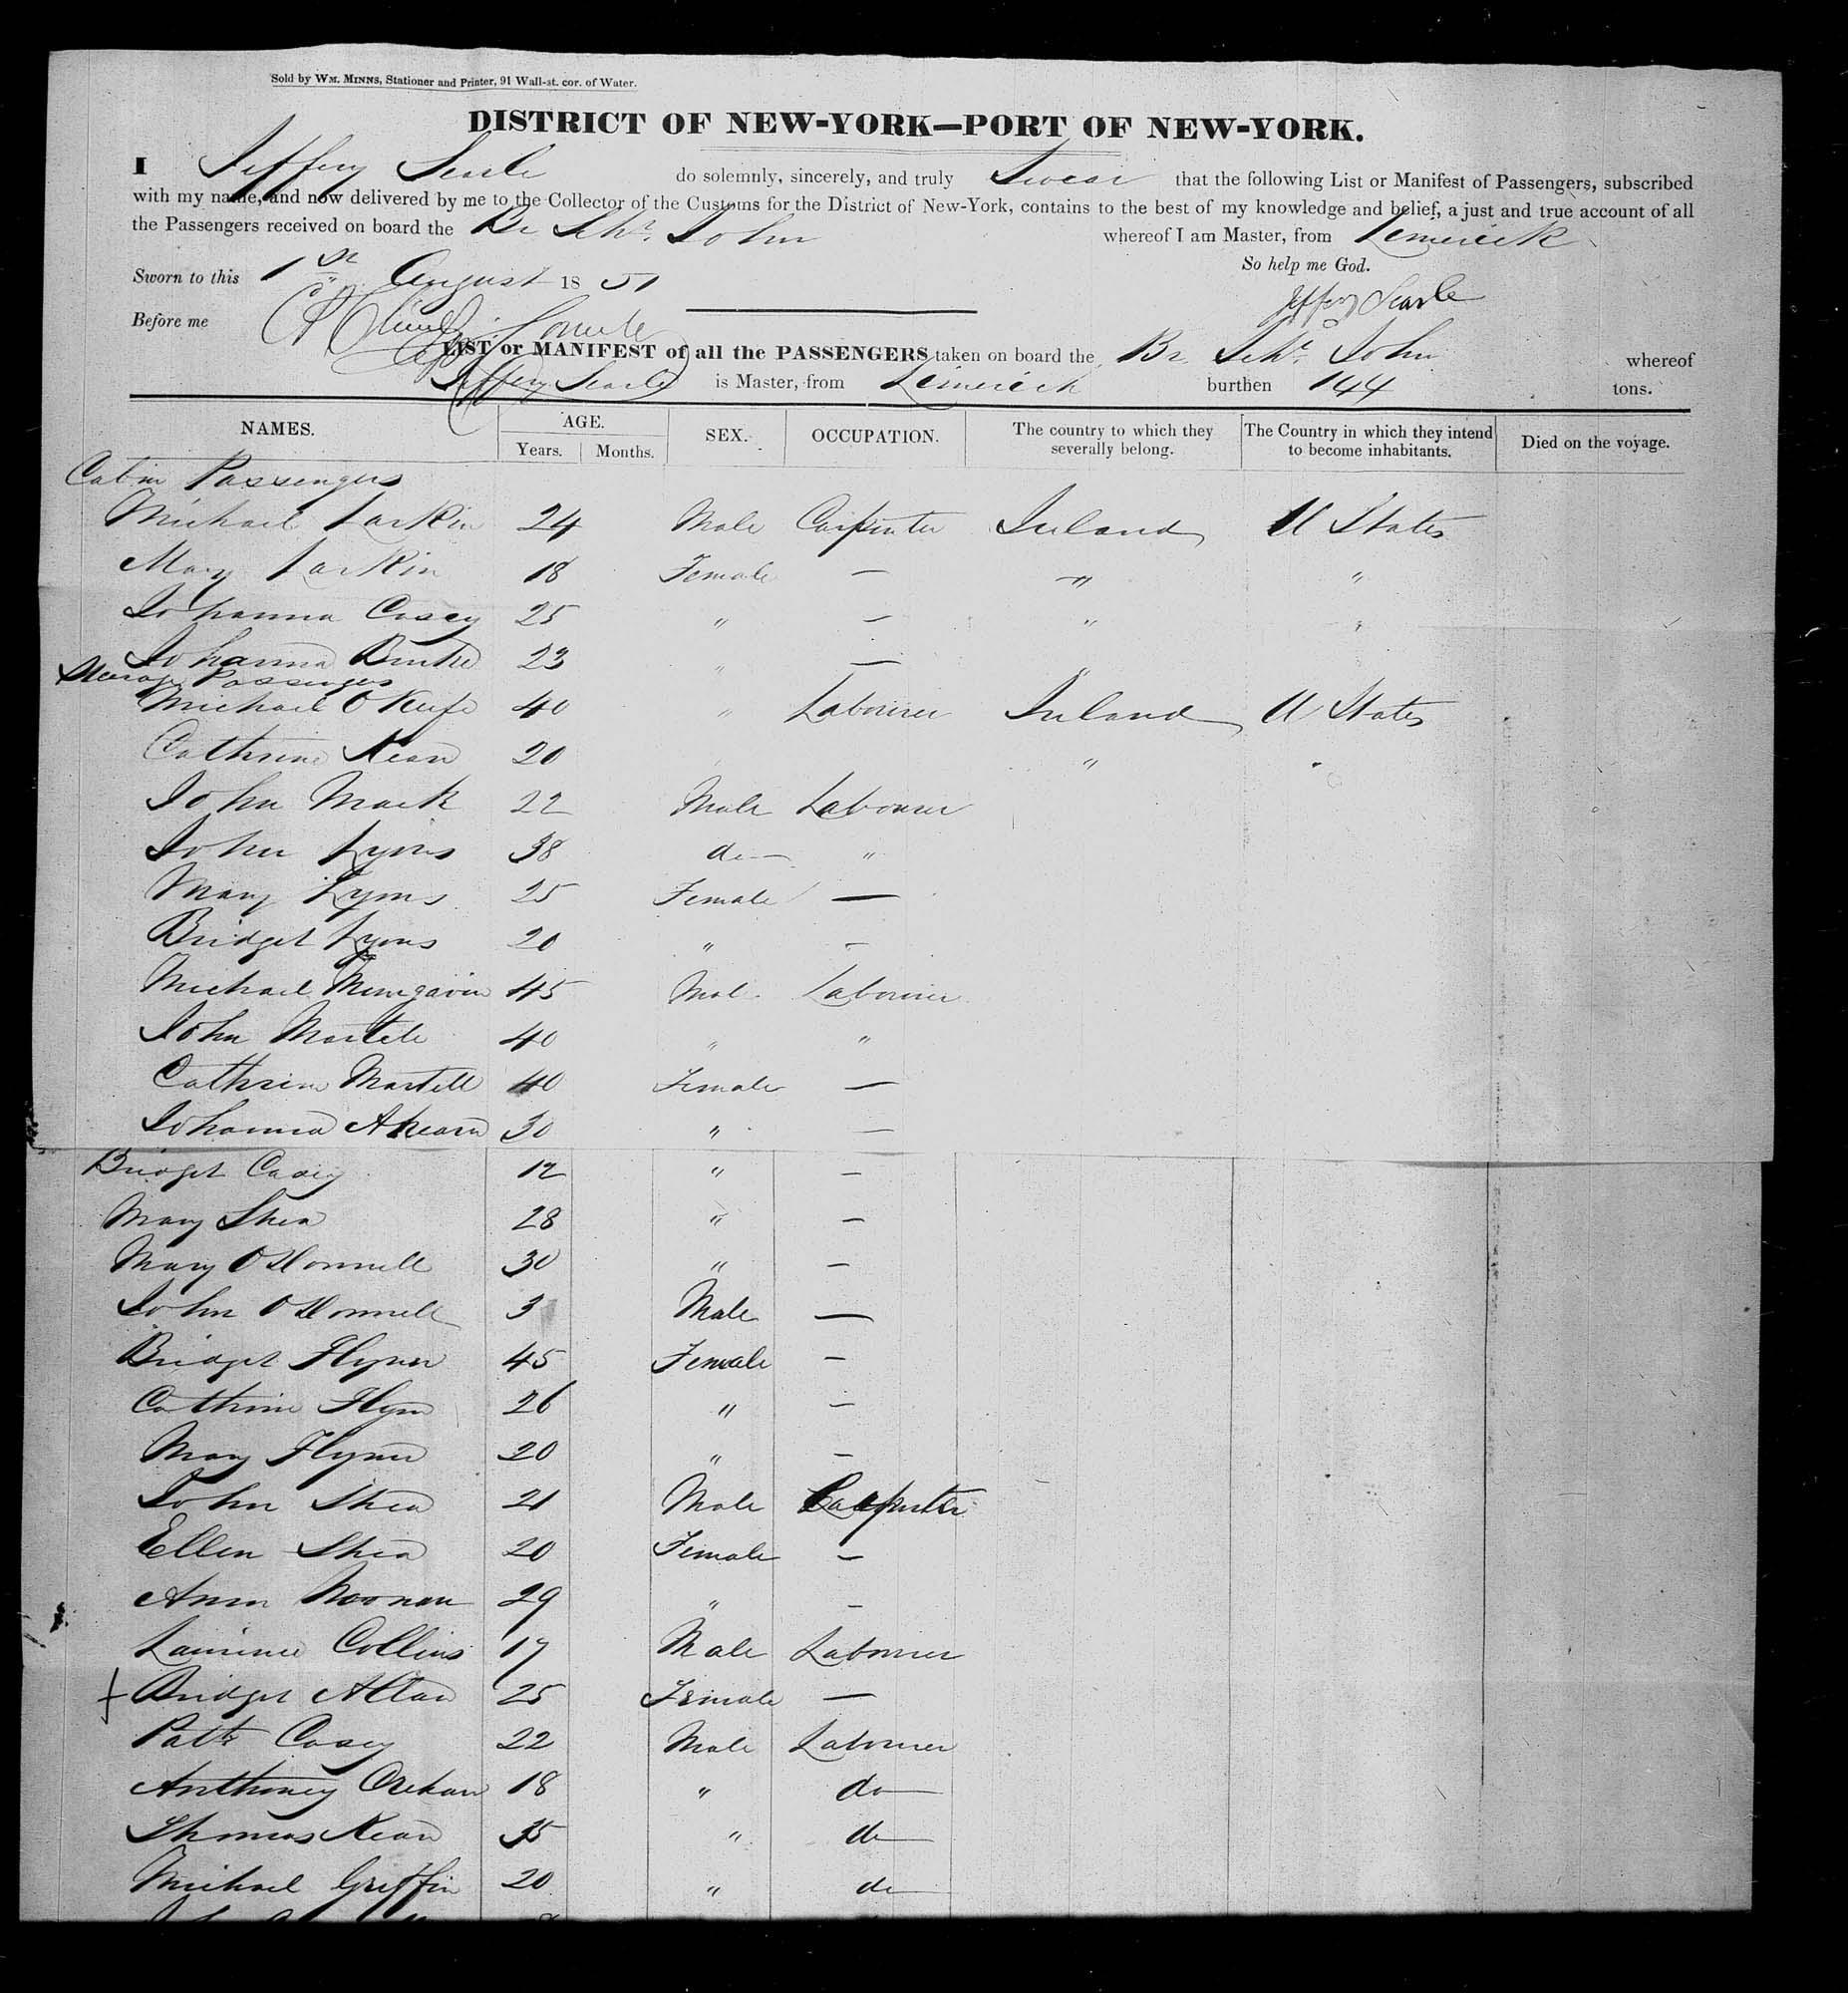 Sold by WM. MINNS, Stationer and Printer, 91 Wall-st. cor. of Water.
DISTRICT OF NEW-YORK—PORT OF NEW-YORK.
I Jeffery Searle do solemnly, sincerely, and truly Swear that the following List or Manifest of Passengers, subscribed
with my name, and now delivered by me to the Collector of the Customs for the District of New-York, contains to the best of my knowledge and belief, a just and true account of all
the Passengers received on board the Br Schr. John whereof I am Master, from Limerick
So help me God.
Sworn to this 1st August 1851
Jeffery Searle
Before me
LIST or MANIFEST of all the PASSENGERS taken on board the Br Schr. John whereof
Jeffery Searle is Master, from Limerick burthen 144 tons.
NAMES. AGE. Years. Months. SEX. OCCUPATION. The country to which they severally belong. The Country in which they intend to become inhabitants. Died on the voyage.
Cabin Passengers
Michael Larkin 24 Male Carpenter Ireland U States
Mary Larkin 18 Female — " "
Johanna Casey 25 " — " "
Johanna Burke 23 " —
Steerage Passengers
Michael O Keefe 40 " Labourer Ireland U States
Cathrine Kean 20 " "
John Mack 22 Male Labourer
John Lyons 38 do "
Mary Lyons 25 Female —
Bridget Lyons 20 " —
Michael 45 Male Labourer
John Martele 40 " "
Cathrine Martell 40 Female —
Johanna Ahearn 30 " —
Bridget Casey 12 " —
Mary Shea 28 " —
Mary O Donnell 30 " —
John O Donnell 3 Male —
Bridget Flynn 45 Female —
Cathrine Flynn 26 " —
Mary Flynn 20 " —
John Shea 21 Male Carpenter
Ellen Shea 20 Female —
Ann Noonan 29 " —
Laurence Collins 17 Male Labourer
+ Bridget Allan 25 Female —
Patk Casey 22 Male Labourer
Anthoney 18 " do
Thomas Kean 35 " do
Michael Griffin 20 " do